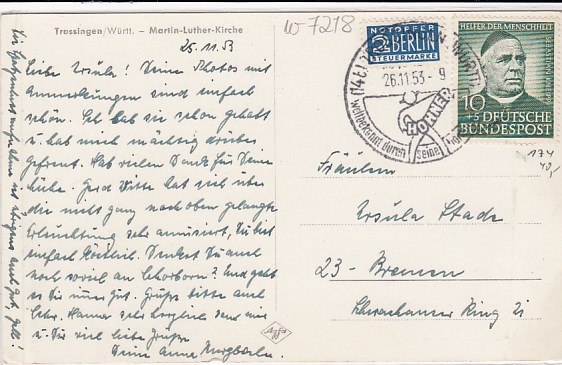 Trossingen/Württ. – Martin-Luther-Kirche
W-7218
25.11.53
Liebe Ursula! Deine Photos mit
Anmerkungen sind einfach
schön. Ich hab sie schon gehabt
u. hab mich mächtig drüber
gefreut. Hab vielen Dank für Deine
Mühe. Gerd Witte hat sich über
die nicht ganz nach oben gelangte
Erleuchtung sehr amüsiert, Du bist
einfach köstlich. Denkst Du auch
noch soviel an ? Und geht
es Dir immer gut. Grüße bitte auch
sehr herzlich und sei
u. Dir viel liebe Grüße
Deine Anna
NOTOPFER
2 BERLIN
STEUERMARKE
HELFER DER MENSCHHEIT
SEBASTIAN KNEIPP
10
+5 DEUTSCHE
BUNDESPOST
(14b) TROSSINGEN (WÜRTT)
26.11.53 - 9
HOHNER
weltbekannt durch seine
174
40,-
Fräulein
Ursula Stade
23-Bremen
Schwachauser Ring 21
Agfa